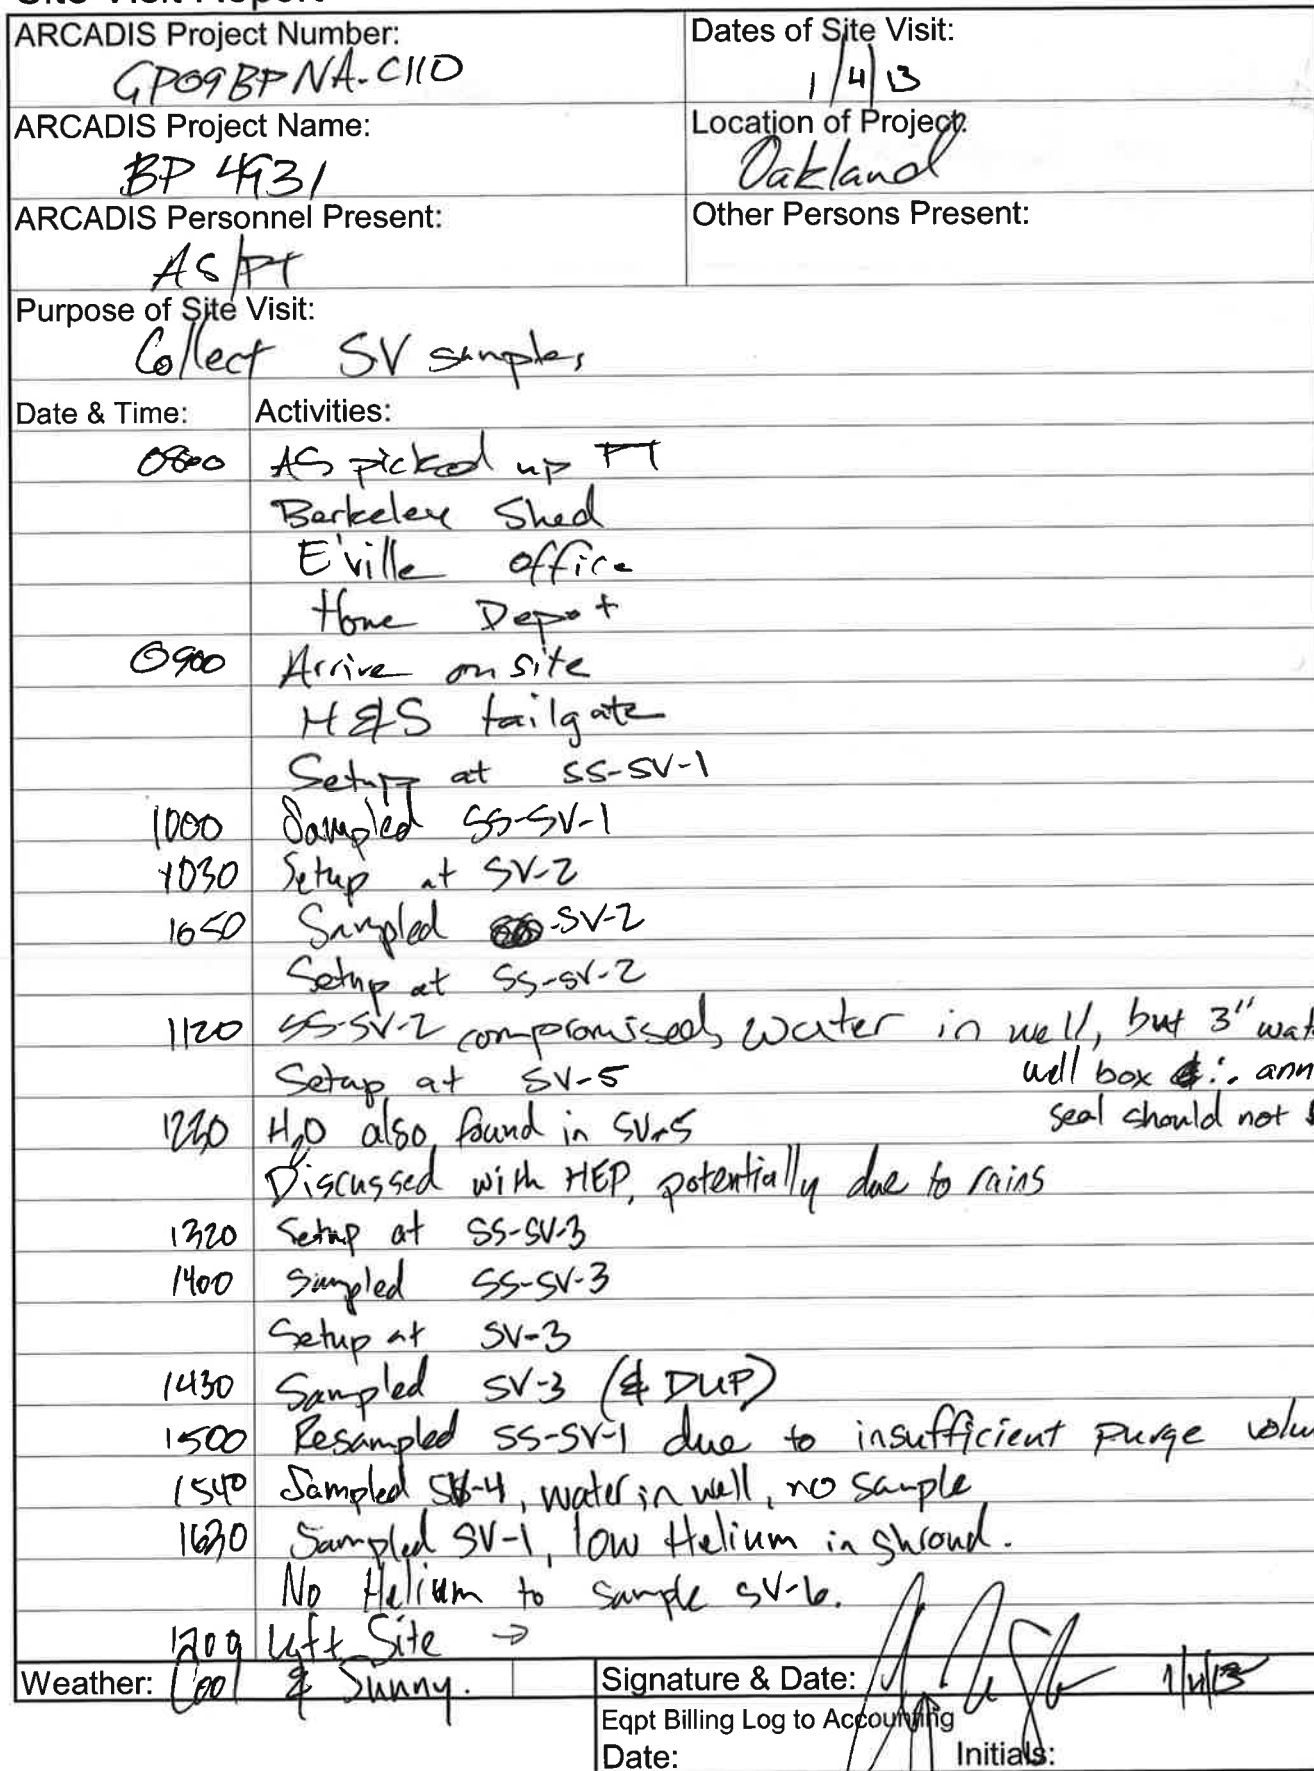 Site Visit Report
ARCADIS Project Number: Dates of Site Visit:
GP09BPNA-C110 1/4/13
ARCADIS Project Name: Location of Project:
BP 4931 Oakland
ARCADIS Personnel Present: Other Persons Present:
AS/PT
Purpose of Site Visit:
Collect SV samples
Date & Time: Activities:
0800 AS picked up PT
Berkeley Shed
E'ville office
Home Depot
0900 Arrive on site
H&S tailgate
Setup at SS-SV-1
1000 Sampled SS-SV-1
1030 Setup at SV-2
1050 Sampled SV-2
Setup at SS-SV-2
1120 SS-SV-2 compromised, water in well, but 3" wat
Setup at SV-5 well box ∴ ann
seal should not
1220 H2O also found in SV-5
Discussed with HEP, potentially due to rains
1320 Setup at SS-SV-3
1400 Sampled SS-SV-3
Setup at SV-3
1430 Sampled SV-3 (& DUP)
1500 Resampled SS-SV-1 due to insufficient purge volu
1540 Sampled SV-4, water in well, no sample
1630 Sampled SV-1, low Helium in shroud.
No Helium to sample SV-6.
Left Site →
Weather: Cool & Sunny. Signature & Date: 1/4/13
Eqpt Billing Log to Accounting
Date: Initials: